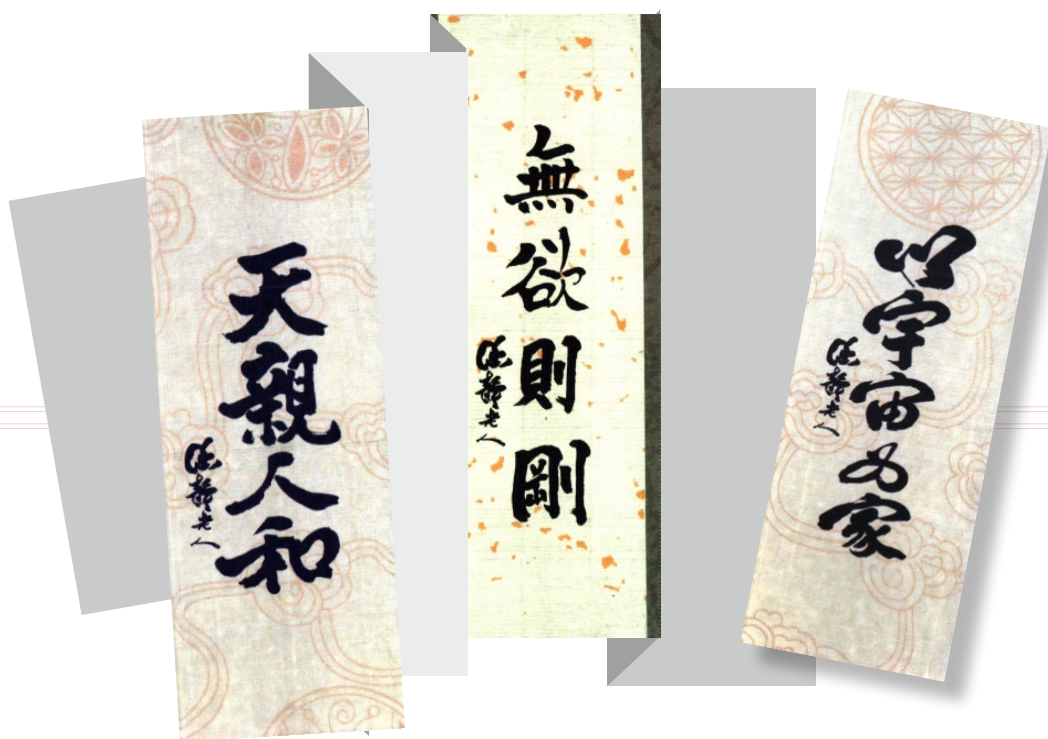 天親人和
涵靜老人
無欲則剛
涵靜老人
以宇宙為家
涵靜老人